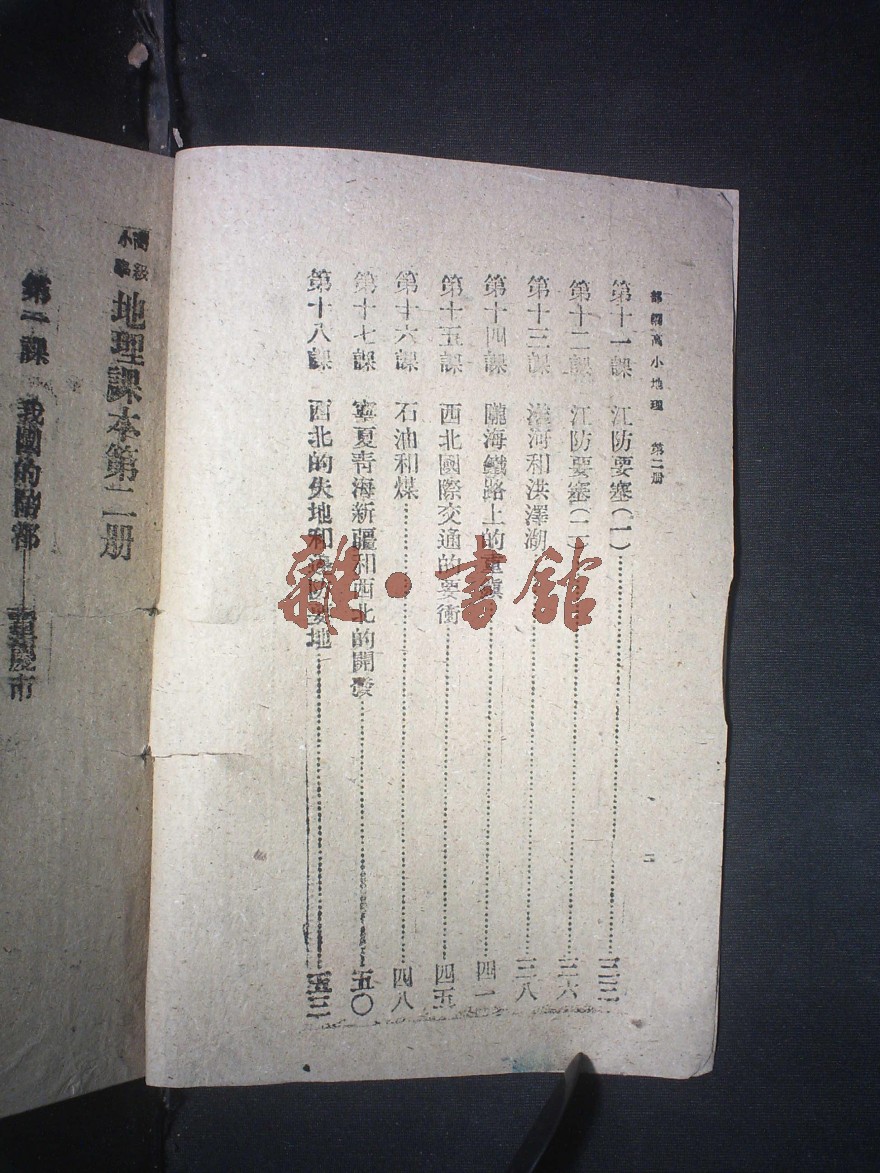 部編高小地理 第二册
二
第十一課 江防要塞(一)……三三
第十二課 江防要塞(二)……三六
第十三課 淮河和洪澤湖……三八
第十四課 隴海鐵路上的重鎮……四一
第十五課 西北國際交通的要衝……四五
第十六課 石油和煤……四八
第十七課 寧夏青海新疆和西北的開發……五〇
第十八課 西北的失地和邊防要地……五三
雜·書館
高級小學 地理課本第二册
第一課 我國的陪都——重慶市